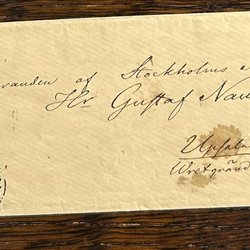 vanden af Stockholms
Hr Gustaf Nau
Upsala
Wretgränd